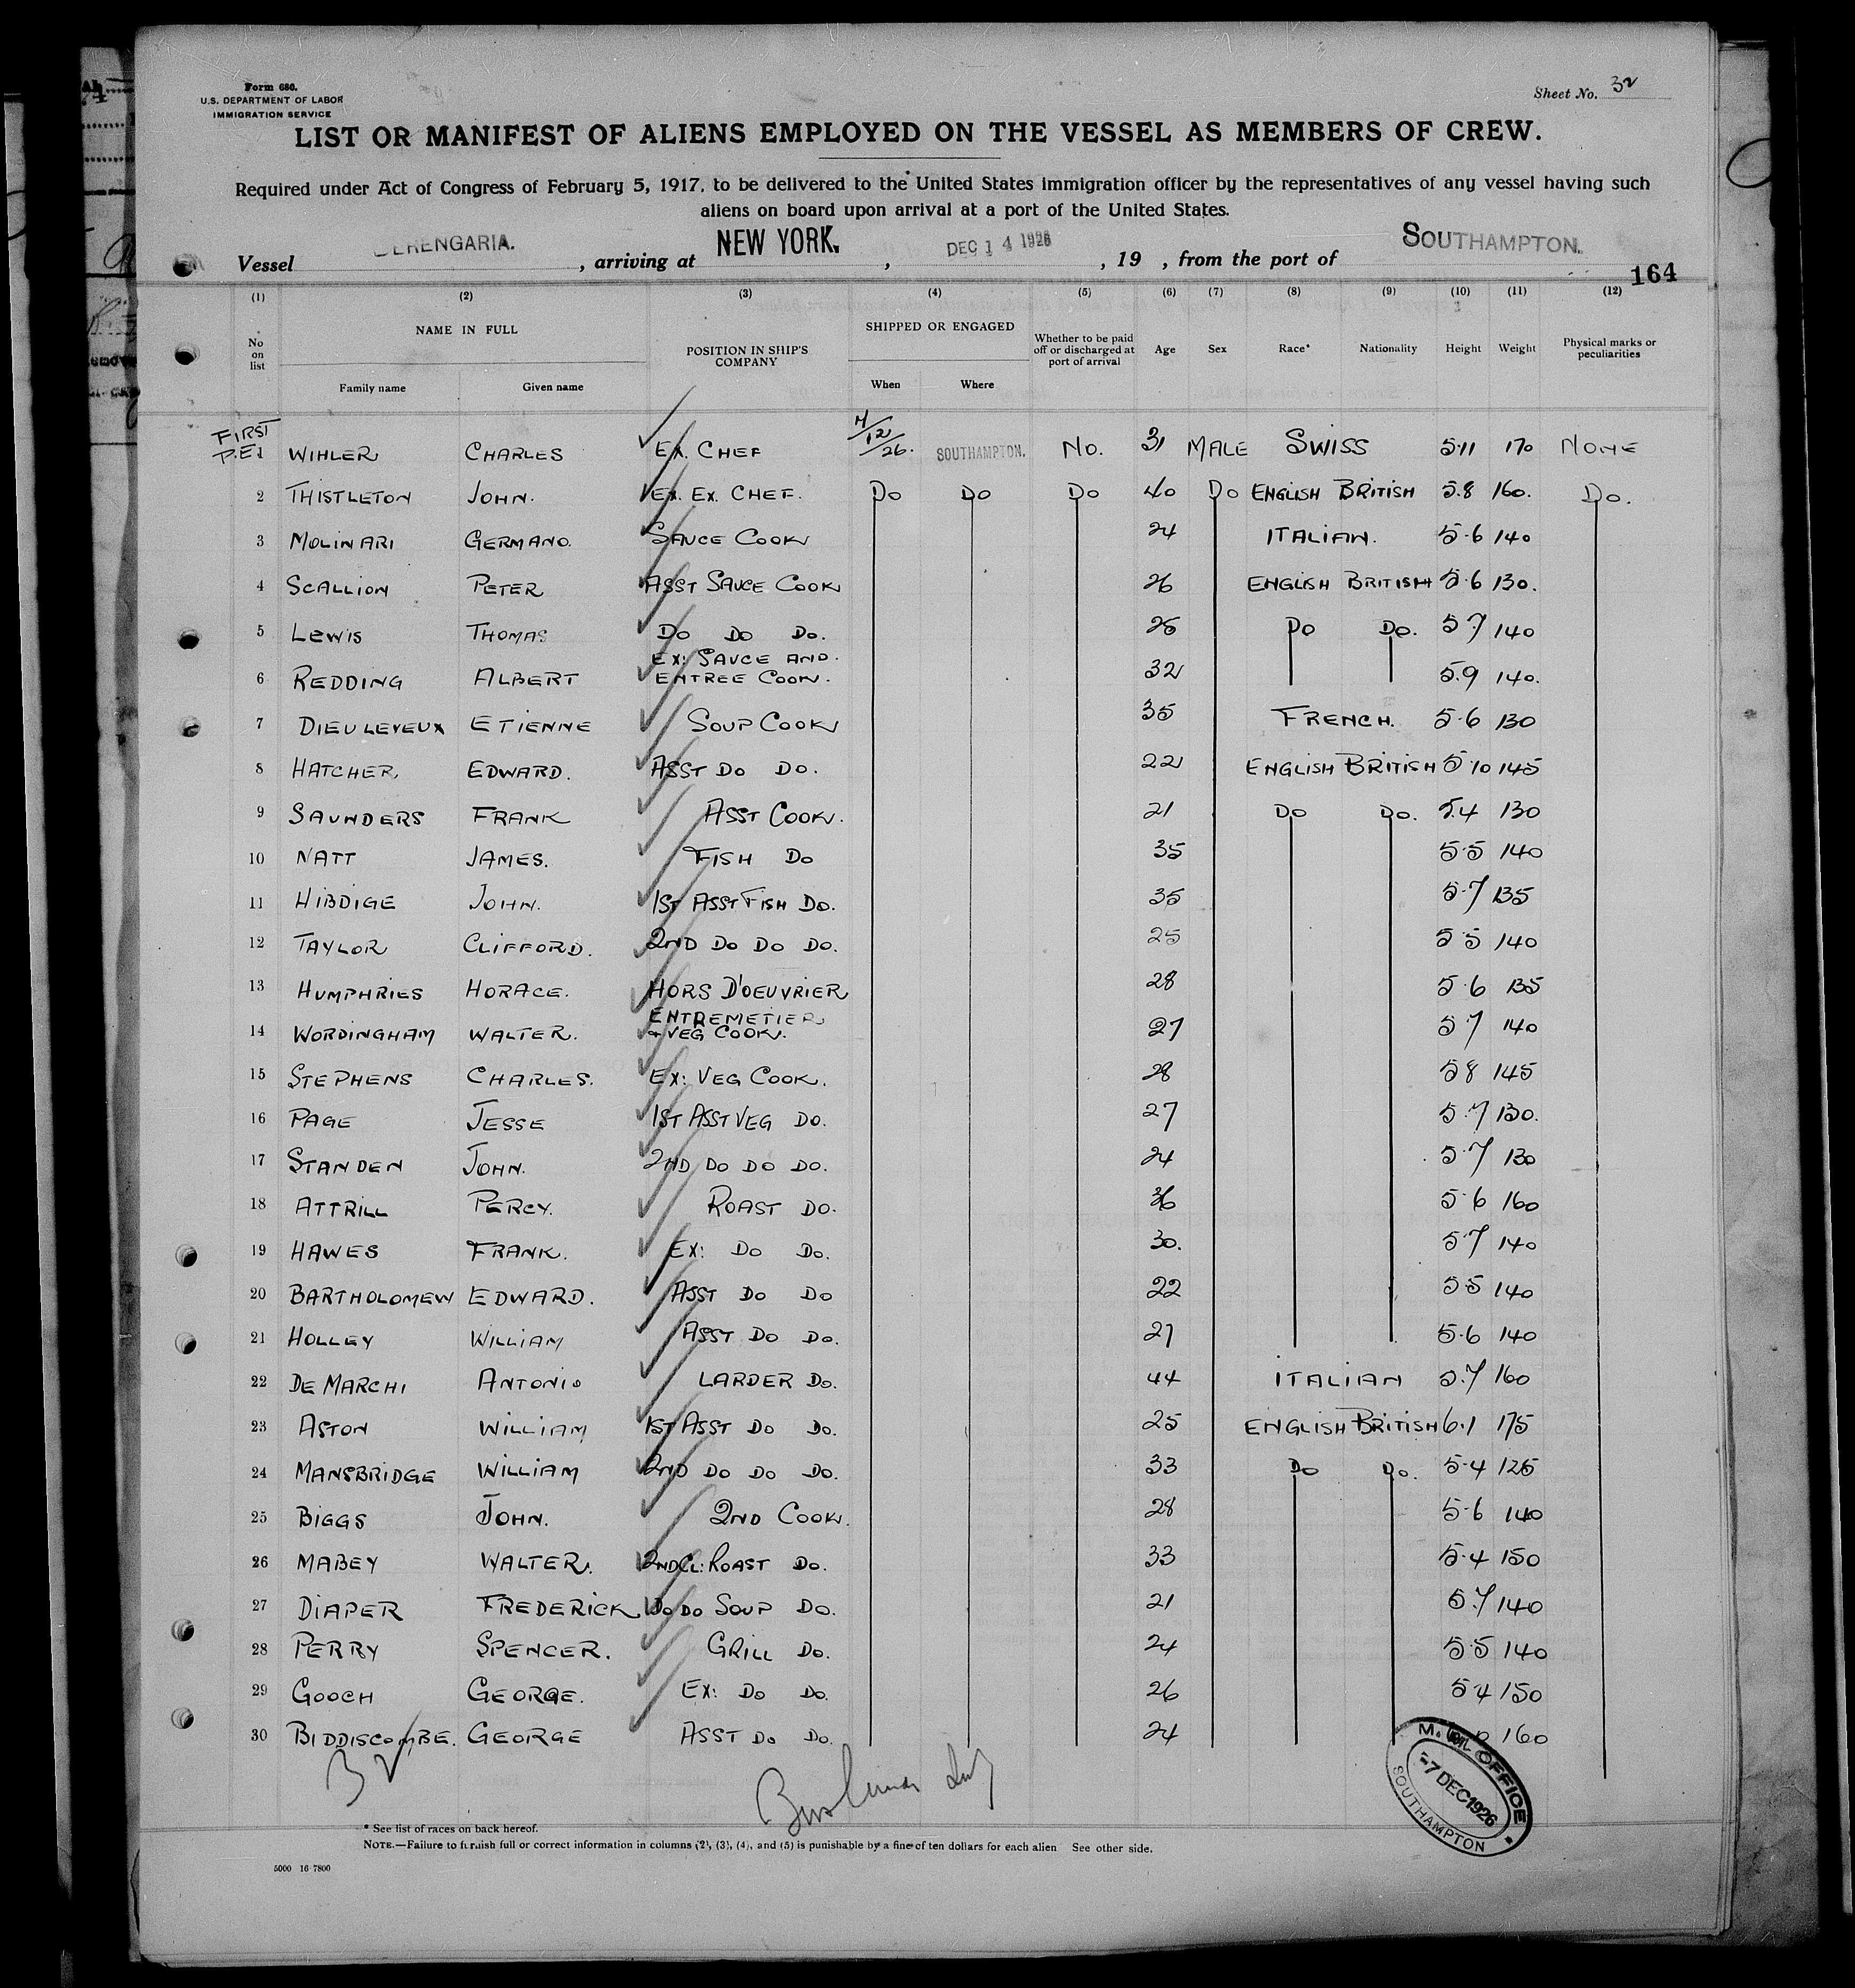 Form 680.
U.S. DEPARTMENT OF LABOR
IMMIGRATION SERVICE
Sheet No. 32
LIST OR MANIFEST OF ALIENS EMPLOYED ON THE VESSEL AS MEMBERS OF CREW.
Required under Act of Congress of February 5, 1917, to be delivered to the United States immigration officer by the representatives of any vessel having such
aliens on board upon arrival at a port of the United States.
Vessel BERENGARIA. , arriving at NEW YORK. , DEC 14 1926 , 19 , from the port of SOUTHAMPTON.
164
(1) (2) (3) (4) (5) (6) (7) (8) (9) (10) (11) (12)
No on list NAME IN FULL Family name Given name POSITION IN SHIP'S COMPANY SHIPPED OR ENGAGED When Where Whether to be paid off or discharged at port of arrival Age Sex Race* Nationality Height Weight Physical marks or peculiarities
FIRST
1 WIHLER CHARLES EX. CHEF 7/12/26. SOUTHAMPTON. NO. 31 MALE SWISS 5·11 170 NONE
2 THISTLETON JOHN. EX. EX. CHEF. DO DO DO 40 DO ENGLISH BRITISH 5.8 160. DO.
3 MOLINARI GERMANO. SAUCE COOK 24 ITALIAN. 5·6 140
4 SCALLION PETER ASST SAUCE COOK 26 ENGLISH BRITISH 5·6 130.
5 LEWIS THOMAS DO DO DO. 25 DO DO. 5 7 140
6 REDDING ALBERT EX: SAUCE AND. ENTREE COOK. 32 5.9 140.
7 DIEULEVEUX ETIENNE SOUP COOK 35 FRENCH. 5·6 130
8 HATCHER, EDWARD. ASST DO DO. 22 ENGLISH BRITISH 5·10 145
9 SAUNDERS FRANK ASST COOK. 21 DO DO. 5.4 130
10 NATT JAMES. FISH DO 35 5·5 140
11 HIBDIGE JOHN. 1ST ASST FISH DO. 35 5·7 135
12 TAYLOR CLIFFORD. 2ND DO DO DO. 25 5 5 140
13 HUMPHRIES HORACE. HORS D'OEUVRIER 28 5·6 135
14 WORDINGHAM WALTER. ENTREMETIER & VEG COOK. 27 5 7 140
15 STEPHENS CHARLES. EX: VEG COOK. 28 5 8 145
16 PAGE JESSE 1ST ASST VEG DO. 27 5·7 130.
17 STANDEN JOHN. 2ND DO DO DO. 24 5·7 130
18 ATTRILL PERCY. ROAST DO. 36 5·6 160
19 HAWES FRANK. EX: DO DO. 30. 5·7 140
20 BARTHOLOMEW EDWARD. ASST DO DO 22 5·5 140
21 HOLLEY WILLIAM ASST DO DO. 27 5·6 140
22 DE MARCHI ANTONIO LARDER DO. 44 ITALIAN 5.7 160
23 ASTON WILLIAM 1ST ASST DO DO. 25 ENGLISH BRITISH 6·1 175
24 MANSBRIDGE WILLIAM 2ND DO DO DO. 33 DO DO. 5·4 125
25 BIGGS JOHN. 2ND COOK. 28 5·6 140
26 MABEY WALTER. 2ND CL: ROAST DO. 33 5·4 150
27 DIAPER FREDERICK DO DO SOUP DO. 21 5.7 140
28 PERRY SPENCER. GRILL DO. 24 5·5 140
29 GOOCH GEORGE. EX: DO DO. 26 5 4 150
30 BIDDISCOMBE. GEORGE ASST DO DO. 24 160
* See list of races on back hereof.
NOTE.—Failure to furnish full or correct information in columns (2), (3), (4), and (5) is punishable by a fine of ten dollars for each alien See other side.
5000 16 7800
OFFICE
7 DEC 1926
SOUTHAMPTON